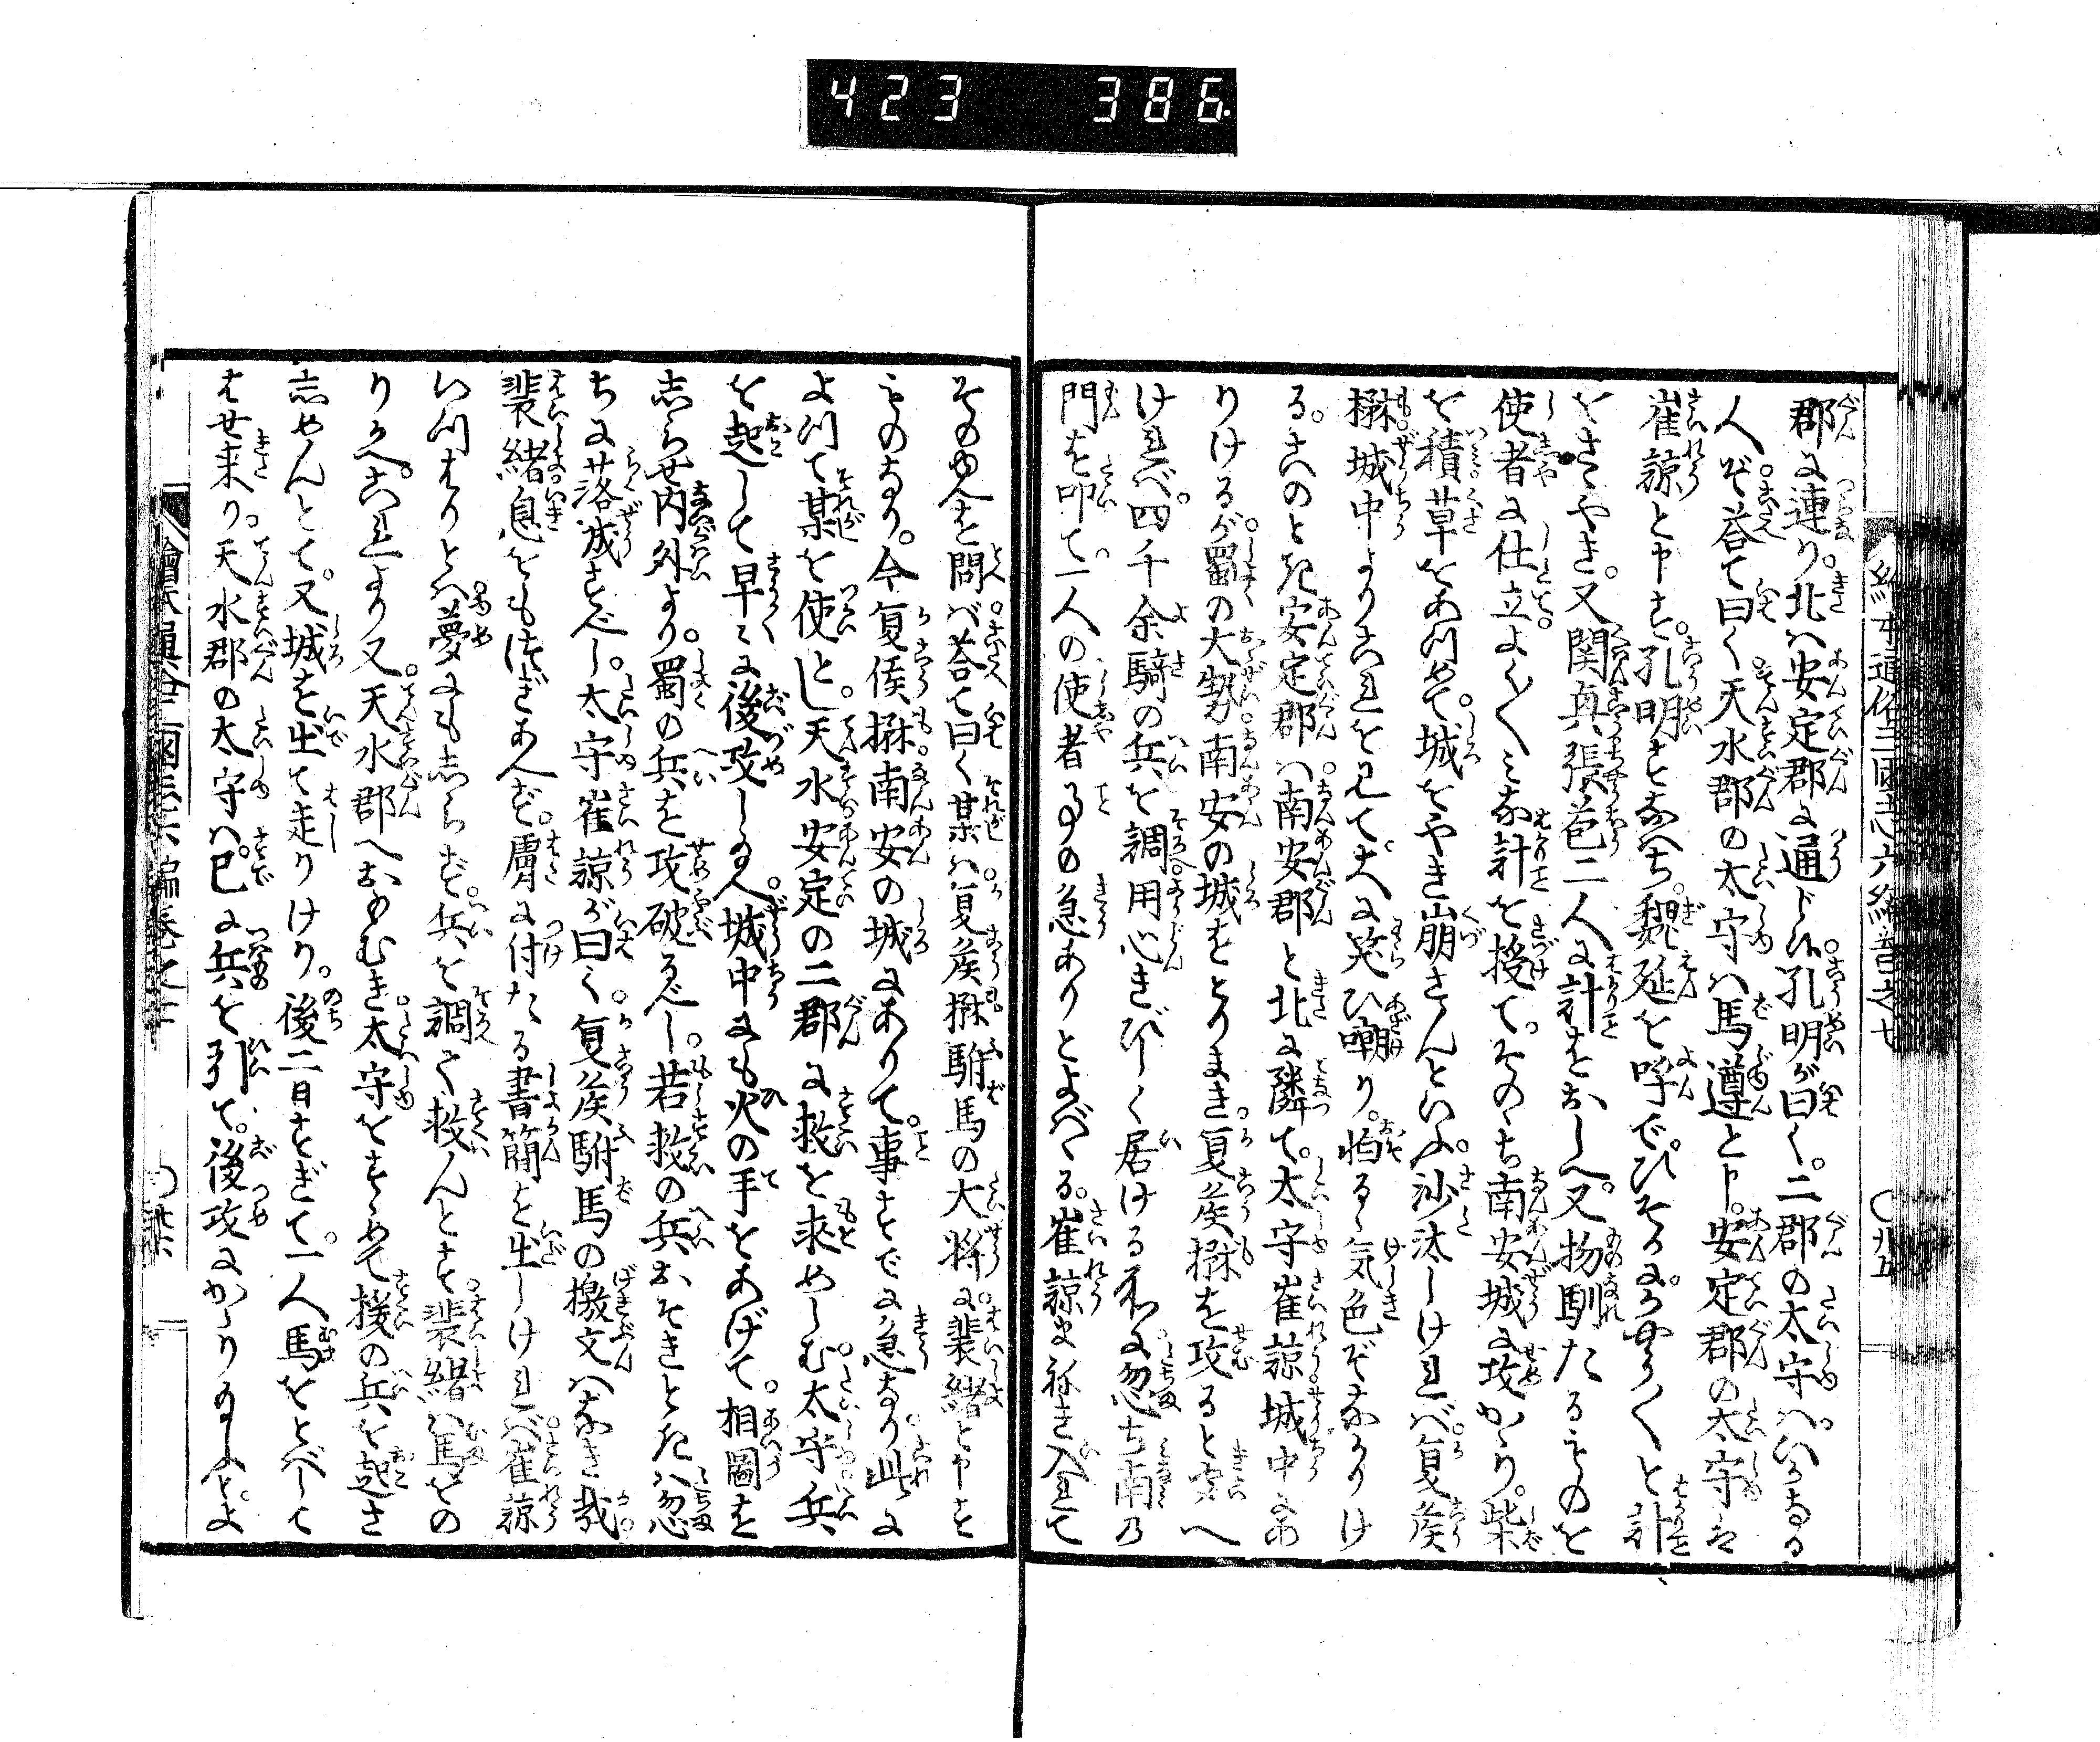 423 386
郡に連り。北は安定郡に通じぬ。孔明が曰く。二郡の太守はいかなる
人ぞ。荅て曰く天水郡の太守は馬遵と申。安定郡の太守は
崔諒と申す。孔明すなはち。魏延を呼で。ひそかに。かやう〱と計
をさゝやき。又関興張苞二人に計をおしへ。又物馴たるものを
使者に仕立よく〱計を授て。そのゝち南安城に攻かゝり。柴
を積草をあつめて。城をやき崩さんといふ。沙汰しければ。夏侯
楙城中よりこれを見て。大に笑ひ嘲り。怕るゝ気色ぞなかりけ
る。さるのとき安定郡は。南安郡と北に隣て。太守崔諒。城中にあ
りけるが。蜀の大勢。南安の城をとりまき。夏侯楙を攻ると聞へ
ければ。四千余騎の兵を調。用心きびしく居ける所に。忽ち南の
門を叩て。一人の使者事の急ありとよばゝる。崔諒まねき入れて
そのゆへを問ば。荅て曰く某は。夏侯楙駙馬の大将に。裴緒と申す
ものなり。今夏侯楙。南安の城にありて。事すでに急なり。此に
よつて某を使とし。天水安定の二郡に救を求めしむ。太守兵
を起して早〻に後攻し給へ。城中にも火の手をあげて。相圖を
志らせ内外より。蜀の兵を攻破るべし。若救の兵おそきときは忽
ちに落城すべし。太守崔諒が曰く。夏侯駙馬の檄文はなき哉。
裴緒息をもつぎあへず。膚に付たる書簡を出しければ。崔諒
いつはりとは。夢にも志らず。兵を調て救んとす。裴緒は馬をの
りかへ。これより又。天水郡へおもむき。太守をすゝめて援の兵を起さ
志めんとて。又城を出て走りけり。後二日すぎて。一人馬をとばして
はせ来り。天水郡の太守は。已に兵を引て。後攻にかゝり給ふと。よ